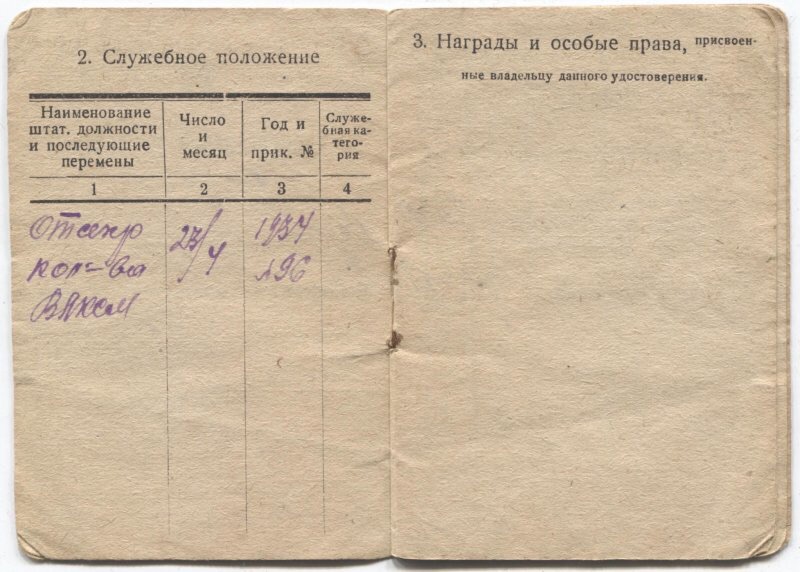 2. Служебное положение
Наименование
штат. должности
и последующие
перемены
Число
и
месяц
Год и
прик. №
Служе-
бная ка-
тего-
рия
1
2
3
4
Отсекр
23/4
1937
кол-ва
№96
ВЛКСМ
3. Награды и особые права, присвоен-
ные владельцу данного удостоверения.